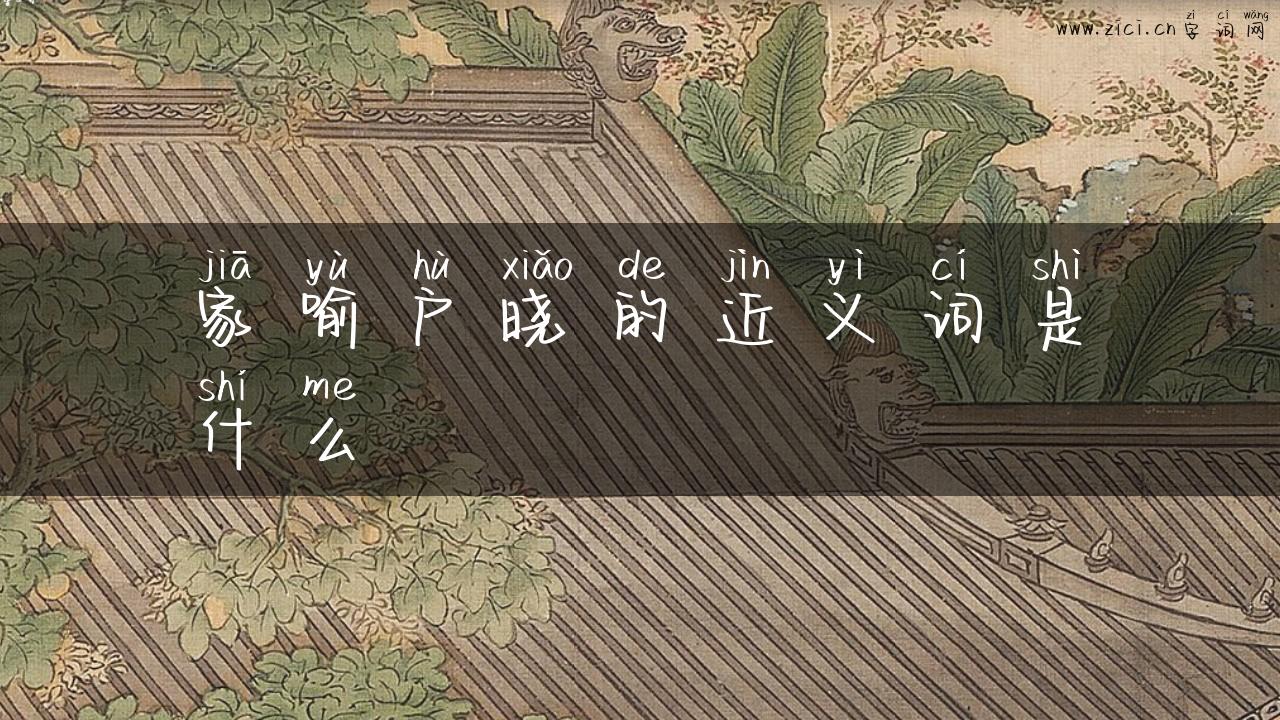 zì cí wǎng
www.zici.cn 字词网
jiā yù hù xiǎo de jìn yì cí shì
家喻户晓的近义词是
shí me
什么